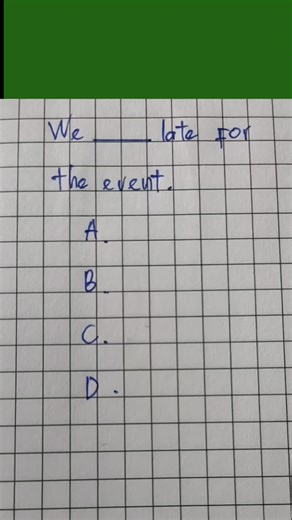 We ____ late for
the event.
A.
B.
C.
D.